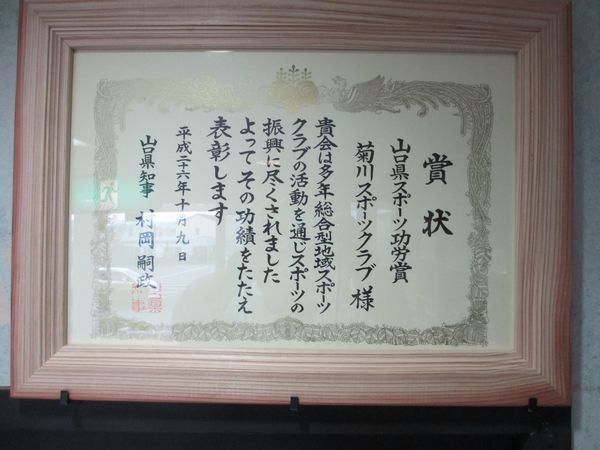 賞状
山口県スポーツ功労賞
菊川スポーツクラブ 様
貴会は多年総合型地域スポーツ
クラブの活動を通じスポーツの
振興に尽くされました
よってその功績をたたえ
表彰します
平成二十六年十月九日
山口県知事 村岡嗣政